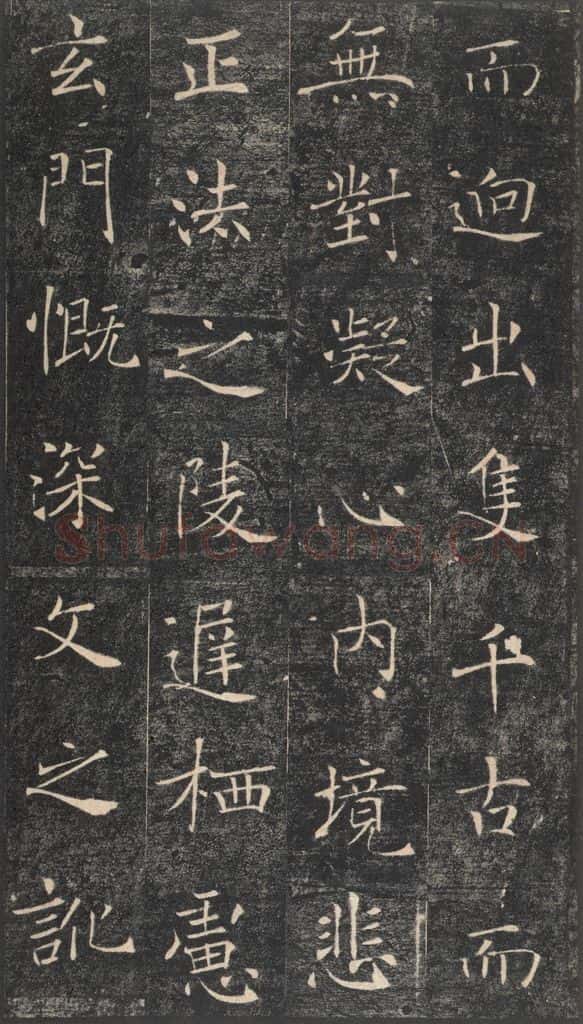 而迥出隻千古而
無對凝心内境悲
正法之陵遲栖慮
玄門慨深文之訛
Shufawang.CN